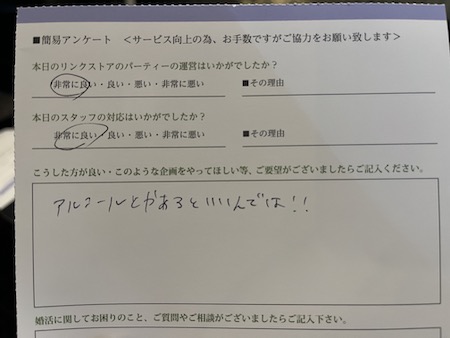 ■簡易アンケート　＜サービス向上の為、お手数ですがご協力をお願い致します＞
本日のリンクストアのパーティーの運営はいかがでしたか？
非常に良い・良い・悪い・非常に悪い　■その理由
本日のスタッフの対応はいかがでしたか？
非常に良い・良い・悪い・非常に悪い　■その理由
こうした方が良い・このような企画をやってほしい等、ご要望がございましたらご記入ください。
アルコールとかあるといいんでは!!
婚活に関してお困りのこと、ご質問やご相談がございましたらご記入下さい。